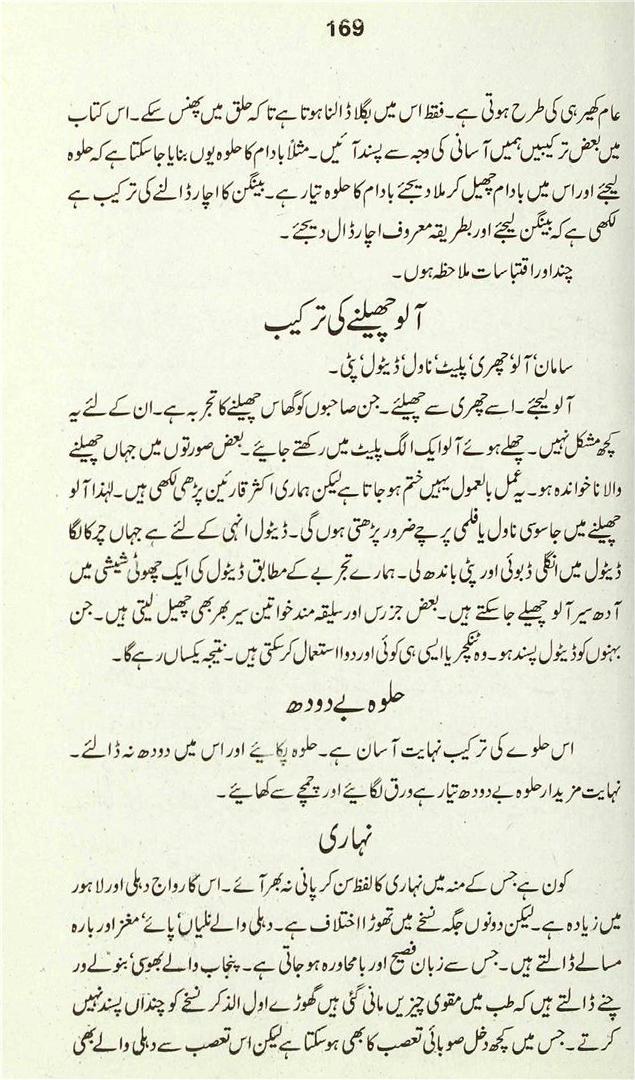 169
عام کھیر ہی کی طرح ہوتی ہے۔ فقط اس میں بگلا ڈالنا ہوتا ہے تا کہ حلق میں پھنس سکے۔ اس کتاب
میں بعض ترکیبیں ہمیں آسانی کی وجہ سے پسند آئیں۔ مثلاً بادام کا حلوہ یوں بنایا جا سکتا ہے کہ حلوہ
لیجئے اور اس میں بادام چھیل کر ملا دیجئے بادام کا حلوہ تیار ہے۔ بینگن کا اچار ڈالنے کی ترکیب یہ
لکھی ہے کہ بینگن لیجئے اور بطریقہ معروف اچار ڈال دیجئے۔
چند اور اقتباسات ملاحظہ ہوں۔
آلو چھیلنے کی ترکیب
سامان‘ آلو‘ چھری‘ پلیٹ‘ ناول‘ ڈیٹول‘ پٹی۔
آلو لیجئے۔ اسے چھری سے چھیلئے۔ جن صاحبوں کو گھاس چھیلنے کا تجربہ ہے۔ ان کے لئے یہ
کچھ مشکل نہیں۔ چھلے ہوئے آلو ایک الگ پلیٹ میں رکھتے جائیے۔ بعض صورتوں میں جہاں چھیلنے
والا ناخواندہ ہو۔ یہ عمل بالعمول یہیں ختم ہو جاتا ہے لیکن ہماری اکثر قارئین پڑھی لکھی ہیں۔ لہٰذا آلو
چھیلنے میں جاسوسی ناول یا فلمی پرچے ضرور پڑھتی ہوں گی۔ ڈیٹول انہی کے لئے ہے جہاں چرکا لگا
ڈیٹول میں انگلی ڈبوئی اور پٹی باندھ لی۔ ہمارے تجربے کے مطابق ڈیٹول کی ایک چھوٹی شیشی میں
آدھ سیر آلو چھیلے جا سکتے ہیں۔ بعض جزرس اور سلیقہ مند خواتین سیر بھر بھی چھیل لیتی ہیں۔ جن
بہنوں کو ڈیٹول پسند ہو۔ وہ ٹنکچر یا ایسی ہی کوئی اور دوا استعمال کر سکتی ہیں۔ نتیجہ یکساں رہے گا۔
حلوہ بے دودھ
اس حلوے کی ترکیب نہایت آسان ہے۔ حلوہ پکائیے اور اس میں دودھ نہ ڈالئے۔
نہایت مزیدار حلوہ بے دودھ تیار ہے ورق لگائیے اور چمچے سے کھائیے۔
نہاری
کون ہے جس کے منہ میں نہاری کا لفظ سن کر پانی نہ بھر آئے۔ اس گا رواج دہلی اور لاہور
میں زیادہ ہے۔ لیکن دونوں جگہ نسخے میں تھوڑا اختلاف ہے۔ دہلی والے نلیاں‘ پائے‘ مغز اور بارہ
مسالے ڈالتے ہیں۔ جس سے زبان فصیح اور بامحاورہ ہو جاتی ہے۔ پنجاب والے بھوسی‘ بنولے ور
چنے ڈالتے ہیں کہ طب میں مقوی چیزیں مانی گئی ہیں گھوڑے اول الذکر نسخے کو چنداں پسند نہیں
کرتے۔ جس میں کچھ دخل صوبائی تعصب کا بھی ہو سکتا ہے لیکن اس تعصب سے دہلی والے بھی